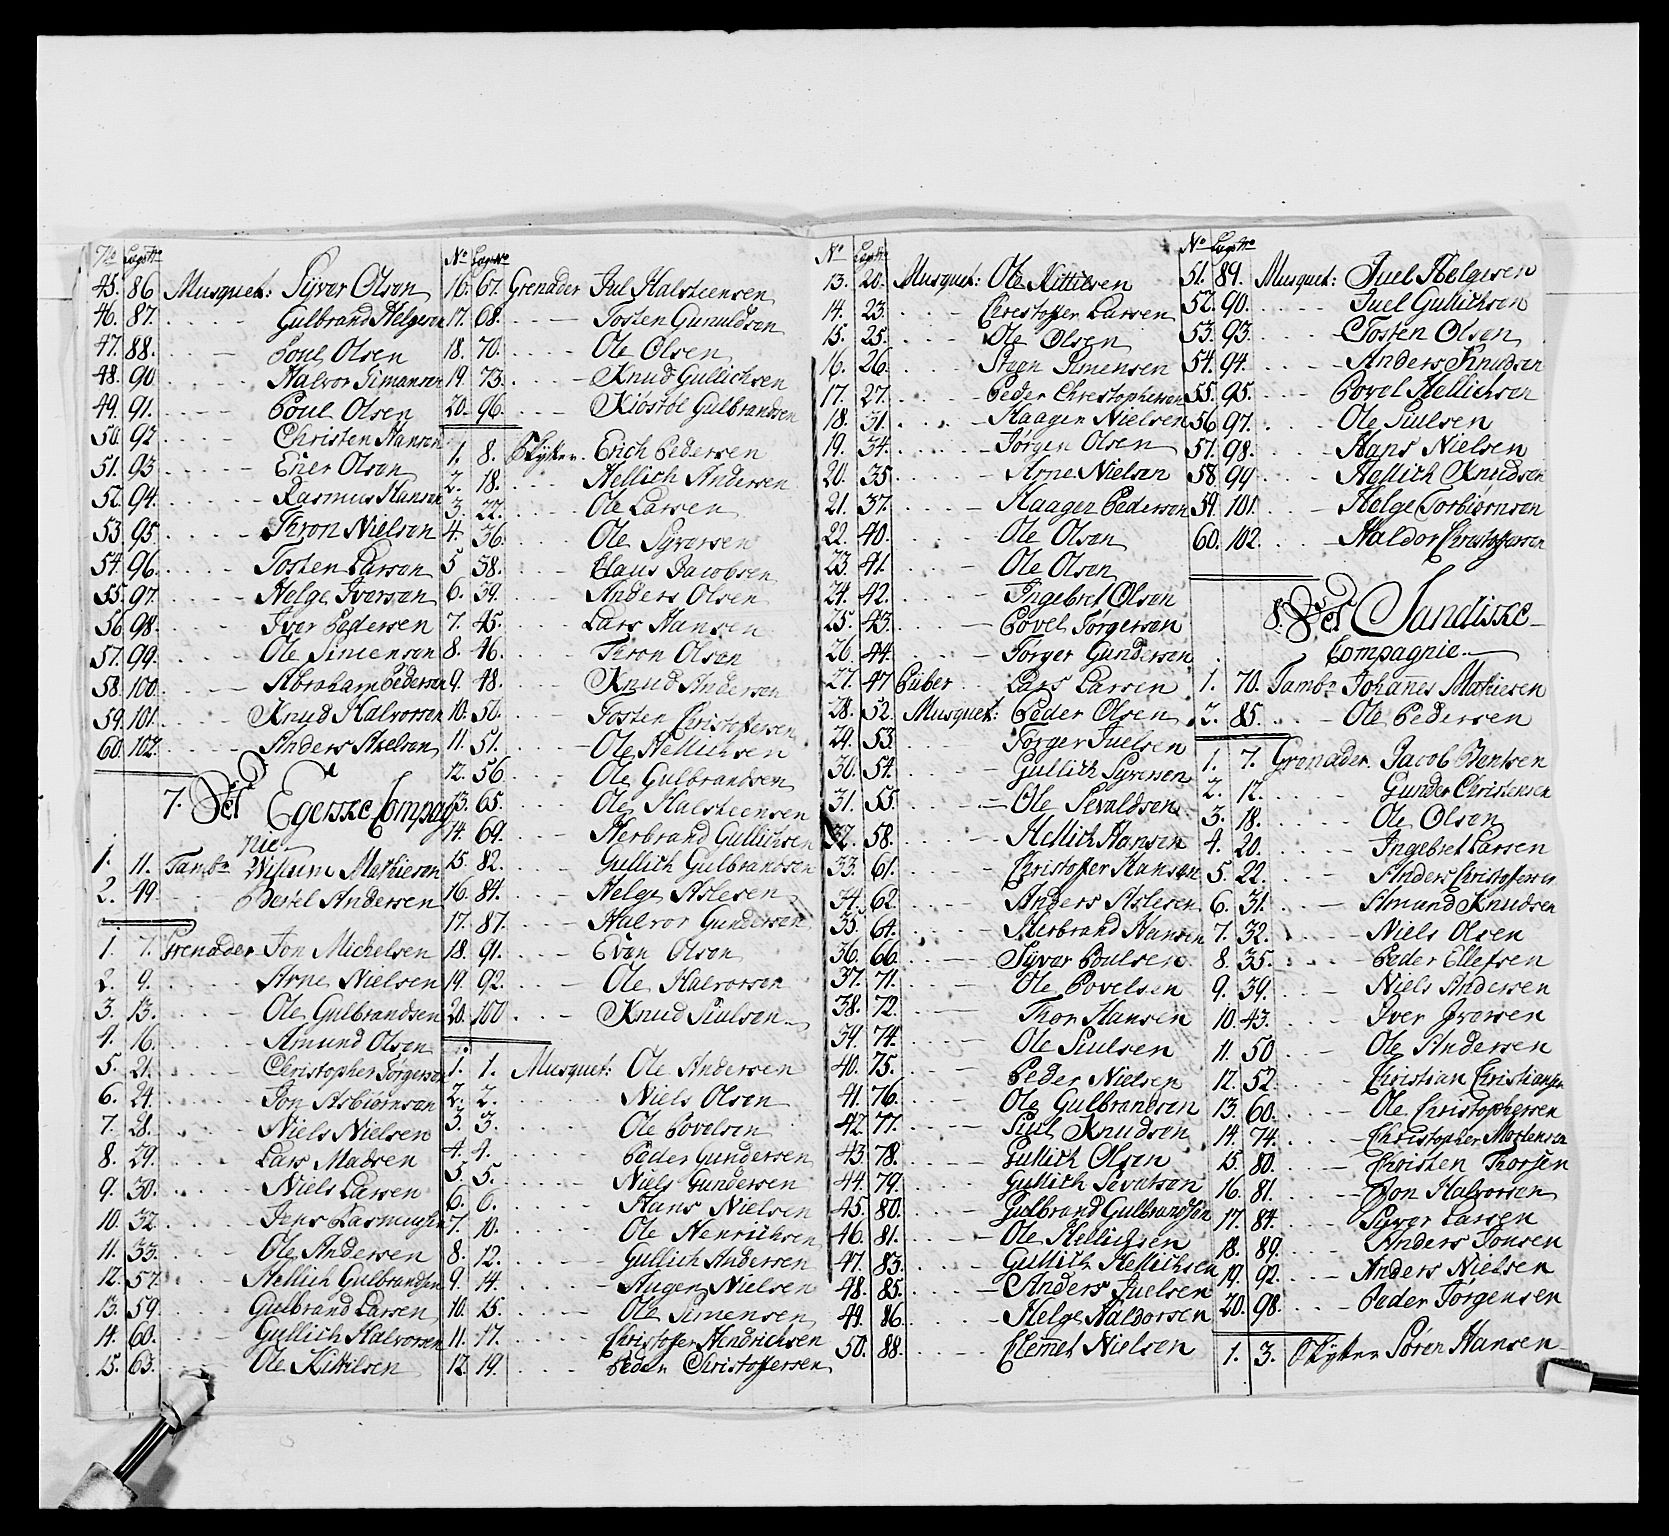 No Lægs No
45. 86 Musquet: Syver Olsen
46. 87. Gulbrand Helgesen
47. 88. Poul Olsen
48. 90. Halvor Simansen
49. 91. Poul Olsen
50. 92 Christen Hansen
51. 93 Erier Olsen
52. 94. Rasmus Hansen
53. 95. Thron Nielsen
54. 96. Tosten Larsen
55. 97. Helge Iversen
56. 98. Iver Pedersen
57. 99. Ole Simensen
58. 100. Abraham Pedersen
59. 101. Knud Halvorsen
60. 102. Anders Axelsen
7. Det Egerske Compag
nie
1. 11. Tambr Wilhum Mathiesen
2. 49. Bertel Andersen
1. 7. Grenader Jon Michelsen
2. 9. Arne Nielsen
3. 13. Ole Gulbrandsen
4. 16. Amund Olsen
5. 21. Christopher Torgersen
6. 24. Jon Asbiörnsen
7. 28. Niels Nielsen
8. 29. Lars Madsen
9. 30. Niels Larsen
10. 32. Jens Rasmusen
11. 33. Ole Andersen
12. 57. Hellich Gulbrandsen
13. 59. Gulbrand Larsen
14. 60. Gullich Halvorsen
15. 63. Ole Kittilsen
No Lægs No
16. 67. Grenader Jul Halsteensen
17. 68. Tosten Gunuldsen
18. 70. Ole Olsen
19. 73. Knud Gullichsen
20. 96. Kiöstöl Gulbrandsen
1. 8. Skytter Erich Pedersen
2. 18. Hellich Andersen
3. 22. Ole Larsen
4. 36. Ole Syversen
5 38. Claus Jacobsen
6. 39. Anders Olsen
7. 45. Lars Hansen
8. 46. Thron Olsen
9. 48. Knud Andersen
10. 50. Tosten Christoffersen
11. 51. Ole Hellichsen
12. 56. Ole Gulbrandsen
13. 65. Ole Halsteensen
14. 69. Herbrand Gullichsen
15. 82. Gullich Gulbrandsen
16. 84. Helge Aslesen
17. 87. Halvor Gundersen
18. 91. Even Olsen
19. 92. Ole Halvorsen
20. 100. Knud Siulsen
1. 1. Musquet: Ole Andersen
2. 2. Niels Olsen
3. 3. Ole Povelsen
4. 4. Peder Gundersen
5. 5. Niels Gundersen
6. 6. Hans Nielsen
7. 10. Ole Henrichsen
8. 12. Gullich Andersen
9. 14. Augen Nielsen
10. 15. Ole Simensen
11. 17. Christoffer Hendrichsen
12. 19. Peder Christoffersen
No Lægs No
13. 20. Musquet: Ole Kittilsen
14. 23. Christoffer Larsen
15. 25. Ole Olsen
16. 26. Steen Simensen
17. 27. Peder Christophersen
18. 31. Haagen Nielsen
19. 34. Jörgen Olsen
20. 35. Arne Nielsen
21. 37. Haagen Pedersen
22. 40. Ole Olsen
23. 41. Ole Olsen
24. 42. Ingebret Olsen
25. 43. Povel Torgersen
26. 44. Torger Gundersen
27. 47 Piber Lars Larsen
28. 52. Musquet: Peder Olsen
29. 53. Torger Juelsen
30. 54. Gullich Syversen
31. 55. Ole Sevaldsen
32. 58. Hellich Hansen
33. 61. Christoffer Hansen
34. 62. Anders Aslesen
35. 64. Herbrand Hansen
36. 66. Syver Poulsen
37. 71. Ole Povelsen
38. 72. Thor Hansen
39. 74. Ole Siulsen
40. 75. Peder Nielsen
41. 76. Ole Gulbrandsen
42. 77. Siul Knudsen
43. 78. Gullich Olsen
44. 79. Gullich Sevatsen
45. 80. Gulbrand Gulbrandsen
46. 81. Ole Hellichsen
47. 83. Gullich Hellichsen
48. 85. Anders Juelsen
49. 86. Helge Haldorsen
50. 88. Clemet Nielsen
No Lægs No
51. 89. Musquet: Juel Helgesen
52. 90. Juel Gullichsen
53. 93. Tosten Olsen
54. 94. Anders Knudsen
55. 95. Povel Hellichsen
56. 97. Ole Siulsen
57. 98. Hans Nielsen
58. 99 Hellich Knudsen
59. 101. Helge Torbiörnsen
60. 102. Haldor Christoffersen
8. Det Sandiske
Compagnie
1. 70. Tambr Johannes Mathiesen
2. 85. Ole Pedersen
1. 7. Grenader Jacob Bentsen
2. 12. Gunder Christensen
3. 18. Ole Olsen
4. 20. Ingebret Larsen
5. 22. Anders Christoffersen
6. 31. Amund Knudsen
7. 32. Niels Olsen
8. 35. Peder Ellefsen
9. 39. Niels Andersen
10. 43. Iver Iversen
11. 50 Ole Andersen
12. 52. Christian Christiansen
13. 60. Ole Christophersen
14. 74. Christopher Mortensen
15. 80. Thorsten Thorsen
16. 81. Jon Halvorsen
17. 84. Syver Larsen
18. 89. Anders Jonsen
19. 92. Anders Nielsen
20. 98. Peder Torgensen
1. 3. Skytter Sören Hansen